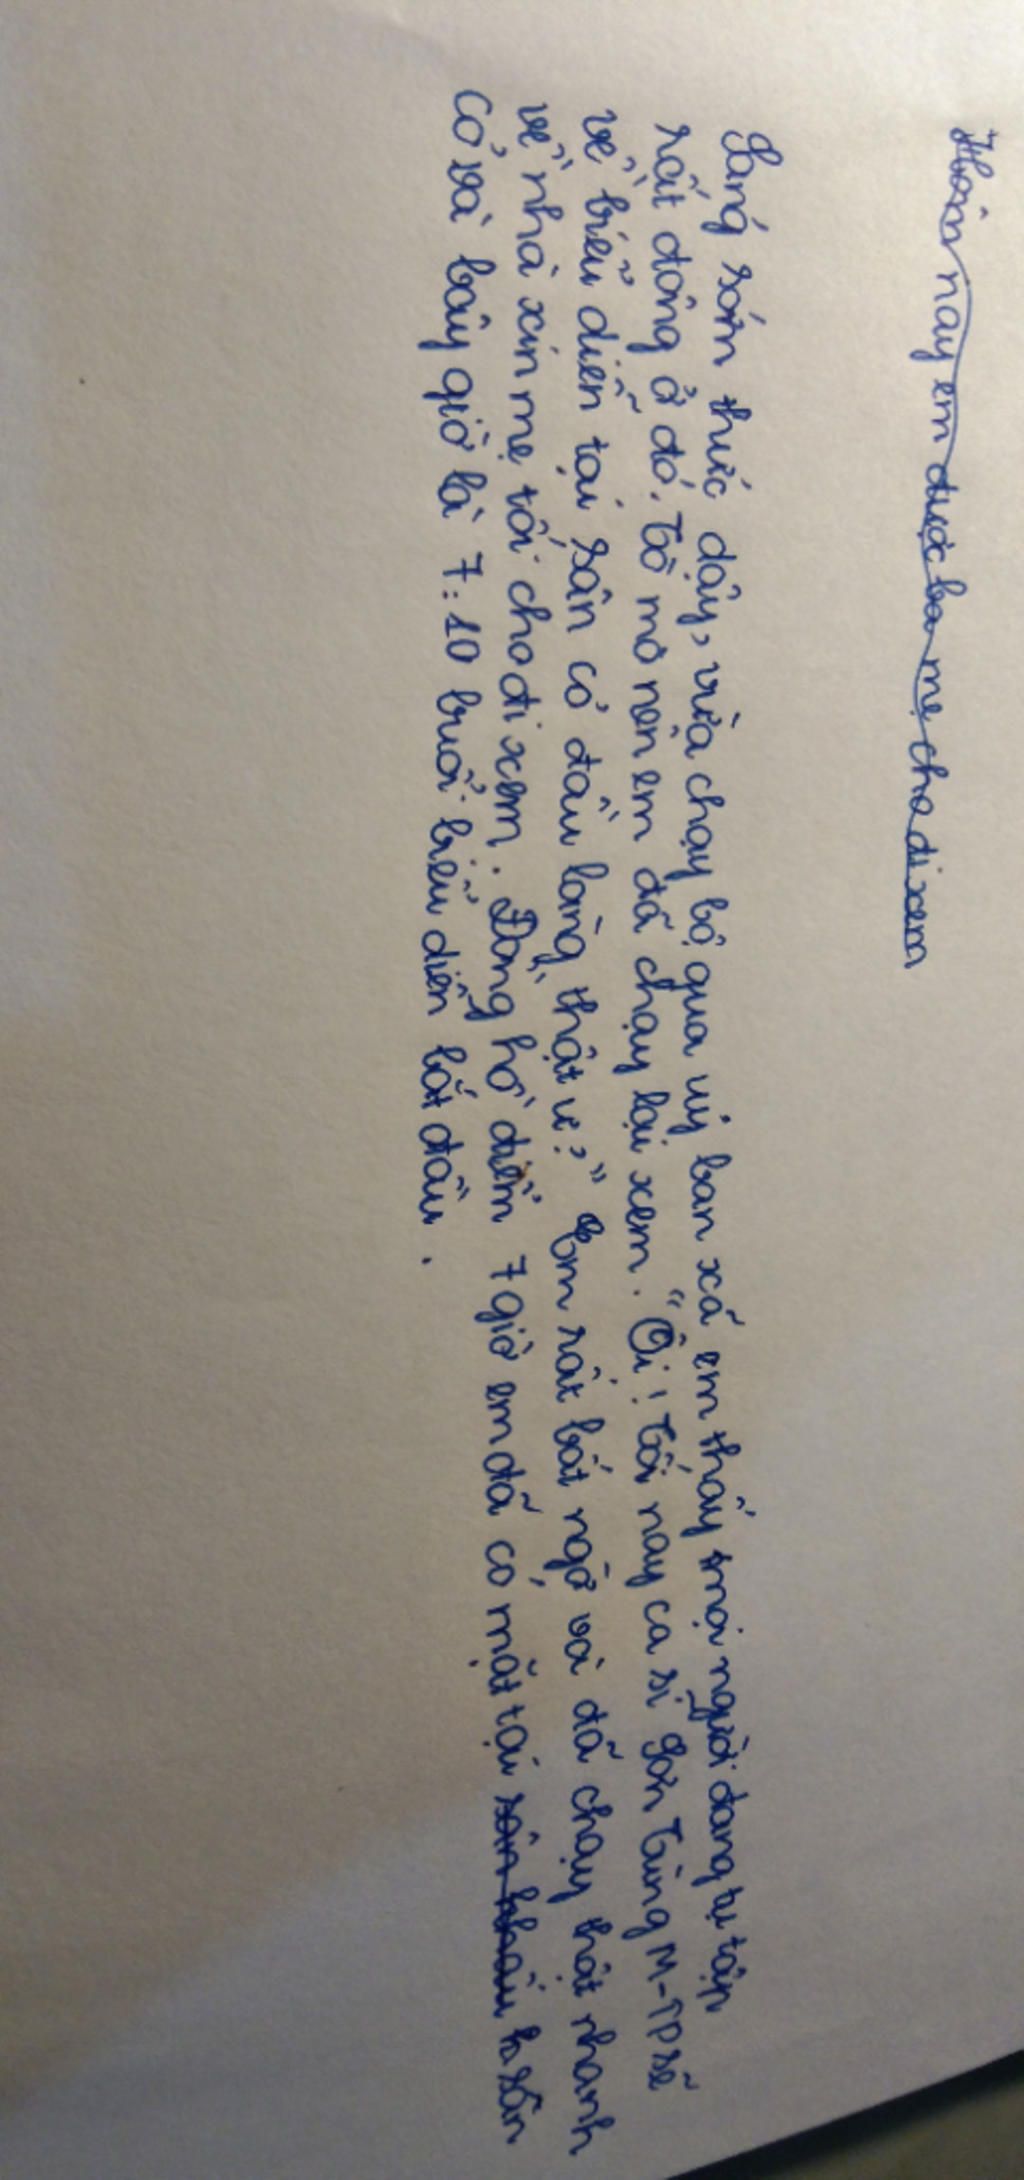 Hôm nay em được ba mẹ cho đi xem
Sáng sớm thức dậy, vừa chạy bộ qua uỷ ban xã em thấy mọi người đang tụ tập
rất đông ở đó. Tò mò nên em đã chạy lại xem. "Ôi! Tối nay ca sĩ Sơn Tùng M-TP sẽ
về biểu diễn tại sân cỏ đầu làng thật ư?" Em rất bất ngờ và đã chạy thật nhanh
về nhà xin mẹ tối cho đi xem. Đồng hồ điểm 7 giờ em đã có mặt tại sân khấu là sân
cỏ và bây giờ là 7:10 buổi biểu diễn bắt đầu.